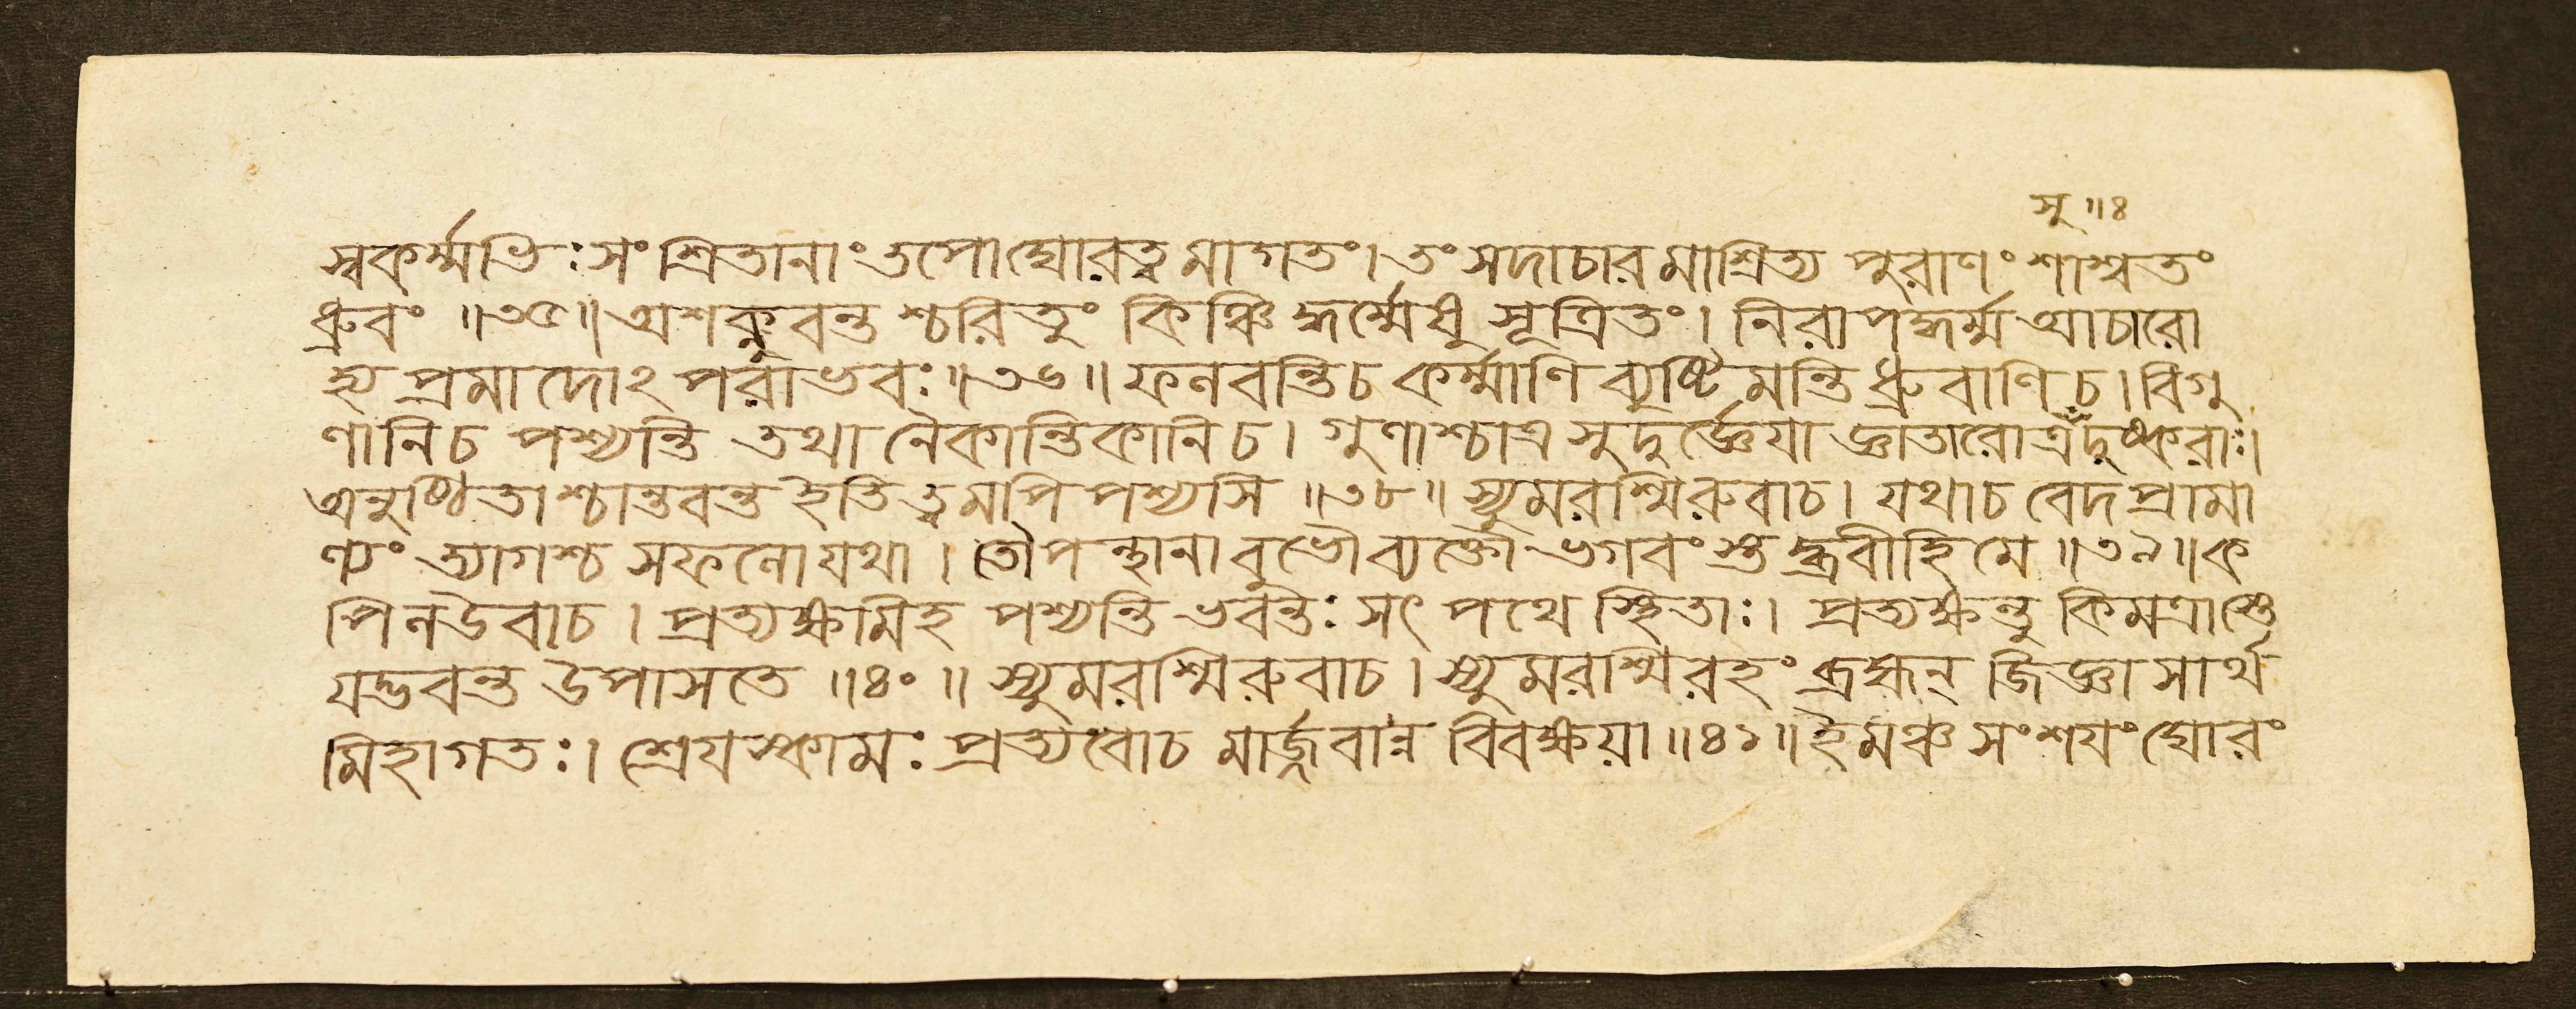 সু ॥ ৪
স্বকর্ম্মভিঃ সংশ্রিতানাং তপোঘোরত্বমাগতং। তং সদাচারমাশ্রিত্য পুরাণং শাশ্বতং
ধ্রুবং ॥৩৫॥ অশক্নুবন্তশ্চরিতুং কিঞ্চিদ্ধর্ম্মেষু সূত্রিতং। নিরাপদ্ধর্ম্ম আচারো
হ্যপ্রমাদোঽপরাভবঃ ॥৩৬॥ ফলবন্তি চ কর্ম্মাণি ব্যুষ্টিমন্তি ধ্রুবাণি চ। বিগু
ণানি চ পশ্যন্তি তথা নৈকান্তিকানি চ। গুণাশ্চাত্র সুদুর্জ্ঞেয়া জ্ঞাতারোত্র দুষ্করাঃ।
অনুষ্ঠিতাশ্চান্তবন্ত ইতি ত্বমপি পশ্যসি ॥৩৮॥ স্যুমরশ্মিরুবাচ। যথা চ বেদপ্রামা
ণ্যং ত্যাগশ্চ সফলো যথা। তৌ পন্থানাবুভৌ ব্যক্তৌ ভগবংস্তদ্ব্রবীহি মে ॥৩৯॥ ক
পিল উবাচ। প্রত্যক্ষমিহ পশ্যন্তি ভবন্তঃ সৎপথে স্থিতাঃ। প্রত্যক্ষন্তু কিমত্রাস্তে
যদ্ভবন্ত উপাসতে ॥৪০॥ স্যুমরশ্মিরুবাচ। স্যুমরশ্মিরহং ব্রহ্মন্ জিজ্ঞাসার্থ
মিহাগতঃ। শ্রেয়স্কামঃ প্রত্যবোচমার্জ্জবান্ন বিবক্ষয়া ॥৪১॥ ইমঞ্চ সংশয়ং ঘোরং